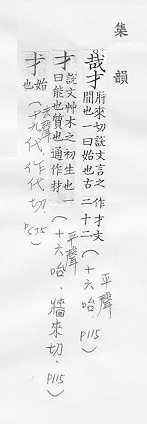 集韻
哉才 將來切說文言之閒也一曰始也古作才文二十二 (平聲十六咍. P115)
才 說文艸木之初生也一曰能也質也通作材 (平聲十六咍, 牆來切. P115)
才 始也 (去聲十九代, 作代切.